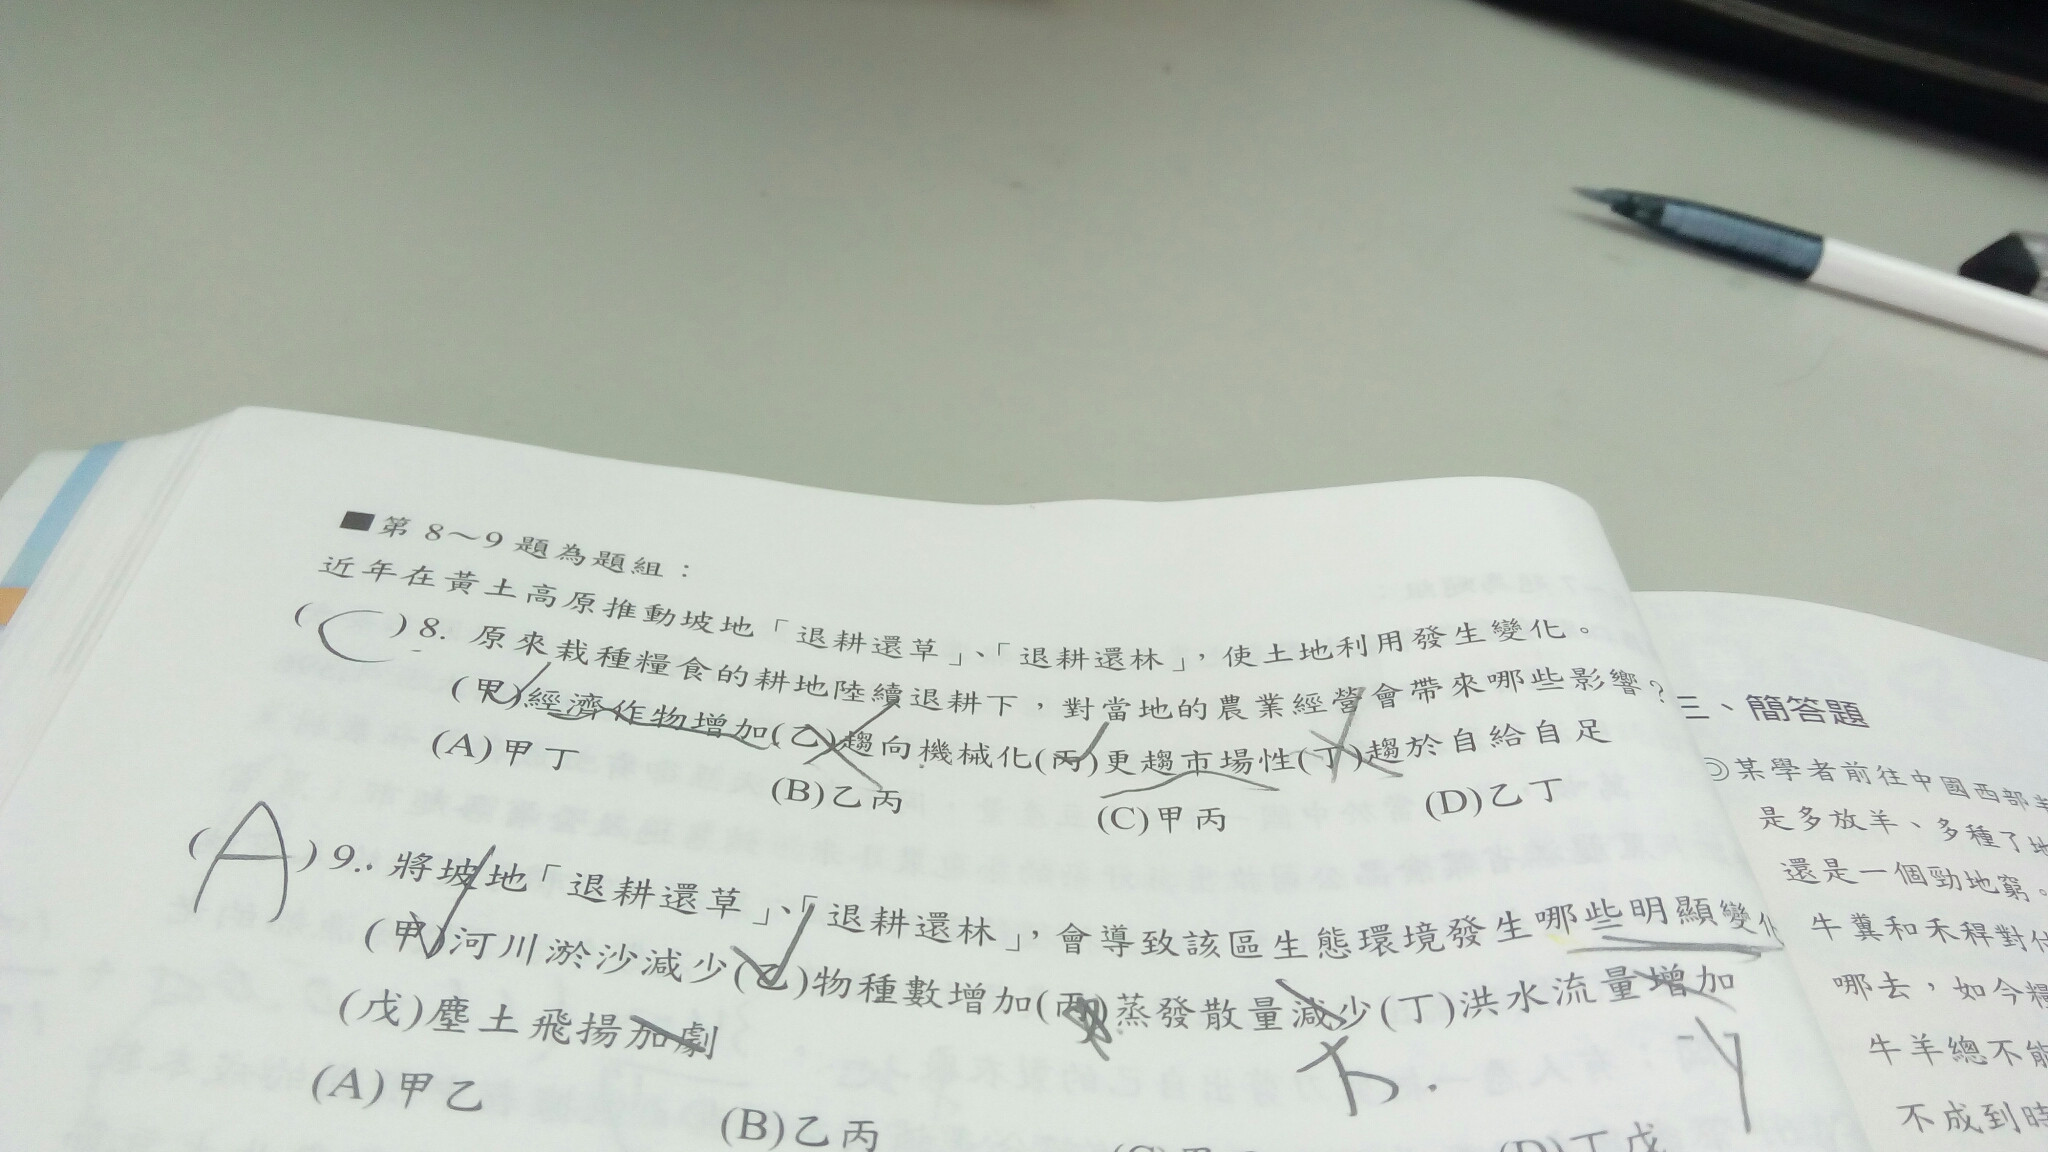 ■第 8～9 題為題組：
近年在黃土高原推動坡地「退耕還草」、「退耕還林」，使土地利用發生變化。
( C ) 8. 原來栽種糧食的耕地陸續退耕下，對當地的農業經營會帶來哪些影響？
(甲)經濟作物增加(乙)趨向機械化(丙)更趨市場性(丁)趨於自給自足
(A)甲丁 (B)乙丙 (C)甲丙 (D)乙丁
( A ) 9. 將坡地「退耕還草」、「退耕還林」，會導致該區生態環境發生哪些明顯變化
(甲)河川淤沙減少(乙)物種數增加(丙)蒸發散量減少(丁)洪水流量增加
(戊)塵土飛揚加劇
大
(A)甲乙 (B)乙丙 (D)丁戊
三、簡答題
某學者前往中國西部
是多放羊、多種了地
還是一個勁地窮。
牛糞和禾稈對
哪去，如今糧
牛羊總不能
不成到時